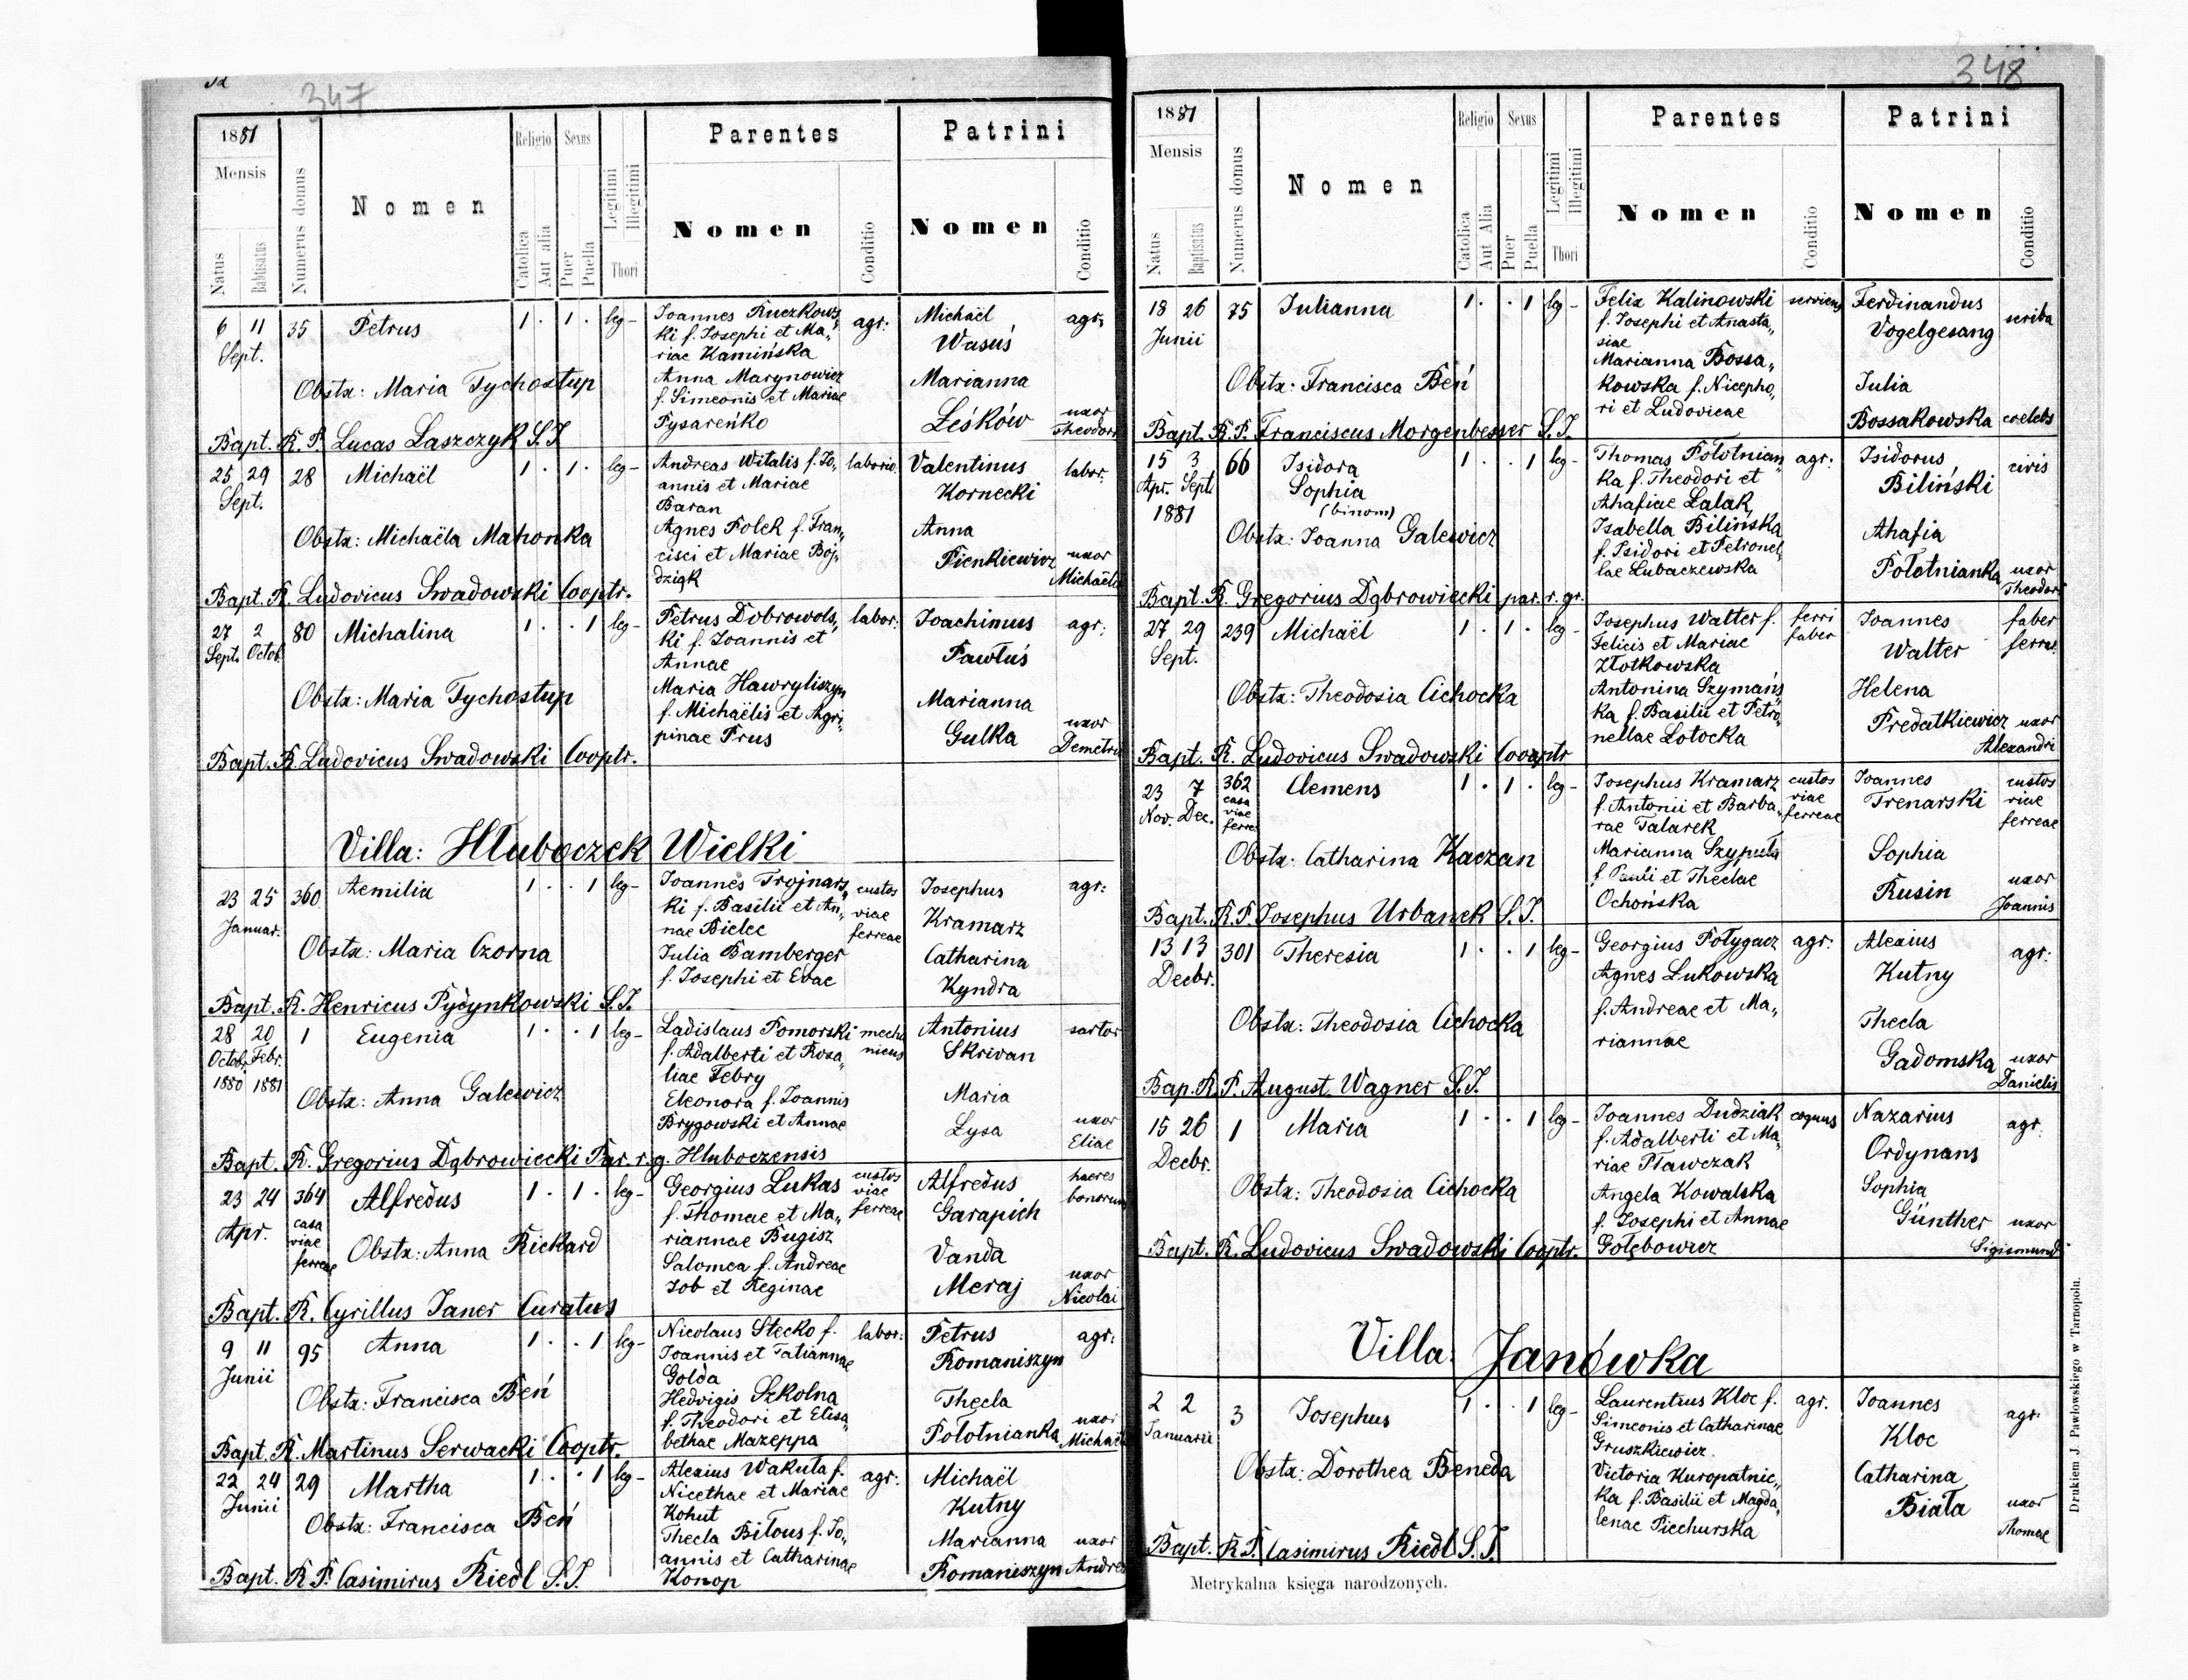 347
1881
Mensis
Natus
Babtisatus
Numerus domus
Nomen
Religio
Catolica
Aut alia
Sexus
Puer
Puella
Legitimi
Illegitimi
Thori
Parentes
Nomen
Conditio
Patrini
Nomen
Conditio
6 11 35 Petrus 1 . 1 . leg- Joannes Ruczkows„ agr: Michaël agr:
Sept. ki f. Josephi et Ma„ Wasuś
riae Kamińska
Obstx: Maria Tychostup Anna Marynowicz Marianna
f. Simeonis et Mariae
Pysareńko Leśków uxor
Theodori
Bapt. R. P. Lucas Laszczyk S.J.
25 29 28 Michaël 1 . 1 . leg- Andreas Witalis f. Jo„ laborio. Valentinus labor.
Sept. annis et Mariae Kornecki
Baran
Obstx: Michaëla Mahonka Agnes Polek f. Fran„ Anna
cisci et Mariae Boj„ Pienkiewicz uxor
dziąk Michaëlis
Bapt. R. Ludovicus Swadowski Cooptr.
27 2 80 Michalina 1 . . 1 leg- Petrus Dobrowols„ labor: Joachimus agr:
Sept. Octob. ki f. Joannis et Pawluś
Annae
Obstx: Maria Tychostup Maria Hawryliszyn Marianna
f. Michaëlis et Agri„
pinae Prus Gulka uxor
Demetrii
Bapt. R. Ludovicus Swadowski Cooptr.
Villa: Hluboczek Wielki
23 25 360 Aemilia 1 . . 1 leg- Joannes Trojnars„ custos Josephus agr:
Januar. ki f. Basilii et An„ viae Kramarz
nae Bielec ferreae
Obstx: Maria Czorna Julia Bamberger Catharina
f. Josephi et Evae Kyndra
Bapt. R. Henricus Pyčynkowski S.J.
28 20 1 Eugenia 1 . . 1 leg- Ladislaus Pomorski mecha Antonius sartor
Octobr. Febr. f. Adalberti et Rosa„ nicus Skrivan
1880 1881 liae Febry
Obstx: Anna Galewicz Eleonora f. Joannis Maria
Brygowski et Annae Lysa uxor
Eliae
Bapt. R. Gregorius Dąbrowiecki Par. r. g. Hluboczensis
23 24 364 Alfredus 1 . 1 . leg- Georgius Lukas custos Alfredus haeres
Apr. casa f. Thomae et Ma„ viae Garapich bonorum
viae riannae Bugisz ferreae
ferreae Obstx: Anna Rickard Salomea f. Andreae Vanda
Job et Reginae Meraj uxor
Nicolai
Bapt. R. Cyrillus Janer Curatus
9 11 95 Anna 1 . . 1 leg- Nicolaus Stecko f. labor: Petrus agr:
Junii Joannis et Tatiannae Romaniszyn
Golda
Obstx: Francisca Beń Hedvigis Szkolna Thecla
f. Theodori et Elisa„ Połotnianka uxor
bethae Mazeppa Michaëlis
Bapt. R. Martinus Serwacki Cooptr.
22 24 29 Martha 1 . . 1 leg- Alexius Wakuła f. agr: Michaël
Junii Nicethae et Mariae Kutny
Kohut
Obstx: Francisca Beń Thecla Biłous f. Jo„ Marianna uxor
annis et Catharinae Romaniszyn Andreae
Konop
Bapt. R. P. Casimirus Riedl S.J.
348
1881
Mensis
Natus
Baptisatus
Numerus domus
Nomen
Religio
Catolica
Aut Alia
Sexus
Puer
Puella
Legitimi
Illegitimi
Thori
Parentes
Nomen
Conditio
Patrini
Nomen
Conditio
18 26 75 Julianna 1 . . 1 leg- Felix Kalinowski serviens Ferdinandus scriba
Junii f. Josephi et Anasta„ Vogelgesang
siae
Marianna Bossa„
Obstx: Francisca Beń kowska f. Nicepho„ Julia
ri et Ludovicae Bossakowska coelebs
Bapt. R. P. Franciscus Morgenbesser S.J.
15 3 66 Isidora 1 . . 1 leg- Thomas Połotnian„ agr: Isidorus civis
Apr. Sept. Sophia ka f. Theodori et Biliński
1881 (binom) Ahafiae Lalak
Obstx: Joanna Galewicz Isabella Bilińska Ahafia
f. Isidori et Petronel„ Połotnianka uxor
lae Lubaczewska Theodori
Bapt. R. Gregorius Dąbrowiecki par. r. gr.
27 29 239 Michaël 1 . 1 . leg- Josephus Walter f. ferri Joannes faber
Sept. Felicis et Mariae faber Walter ferrar.
Złotkowska
Obstx: Theodosia Cichocka Antonina Szymańs„ Helena
ka f. Basilii et Petro„ Predatkiewicz uxor
nellae Lotocka Alexandri
Bapt. R. Ludovicus Swadowski Cooptr
23 7 362 Clemens 1 . 1 . leg- Josephus Kramarz custos Joannes custos
Nov. Dec. casa f. Antonii et Barba„ viae Trenarski viae
viae rae Talarek ferreae ferreae
ferre.
Obstx: Catharina Kaczan Marianna Szypuła Sophia
f. Pauli et Theclae Rusin uxor
Ochońska Joannis
Bapt. R. P. Josephus Urbanek S.J.
13 13 301 Theresia 1 . . 1 leg- Georgius Połygacz agr: Alexius agr:
Decbr. Agnes Lukowska Kutny
Obstx: Theodosia Cichocka f. Andreae et Ma„ Thecla
riannae Gadomska uxor
Danielis
Bap. R. P. August Wagner S.J.
15 26 1 Maria 1 . . 1 leg- Joannes Dudziak coquus Nazarius agr:
Decbr. f. Adalberti et Ma„ Ordynans
riae Pławczak
Obstx: Theodosia Cichocka Angela Kowalska Sophia
f. Josephi et Annae Günther uxor
Gołębowicz Sigismundi
Bapt. R. Ludovicus Swadowski Cooptr.
Villa: Janówka
2 2 3 Josephus 1 . . 1 leg- Laurentius Kloc f. agr. Joannes agr:
Januarii Simeonis et Catharinae Kloc
Gruszkiewicz.
Obstx: Dorothea Beneda Victoria Kuropatnic„ Catharina
ka f. Basilii et Magda„ Biała uxor
lenae Piechurska Thomae
Bapt. R. P. Casimirus Riedl S.J.
Metrykalna księga narodzonych.
Drukiem J. Pawłowskiego w Tarnopolu.